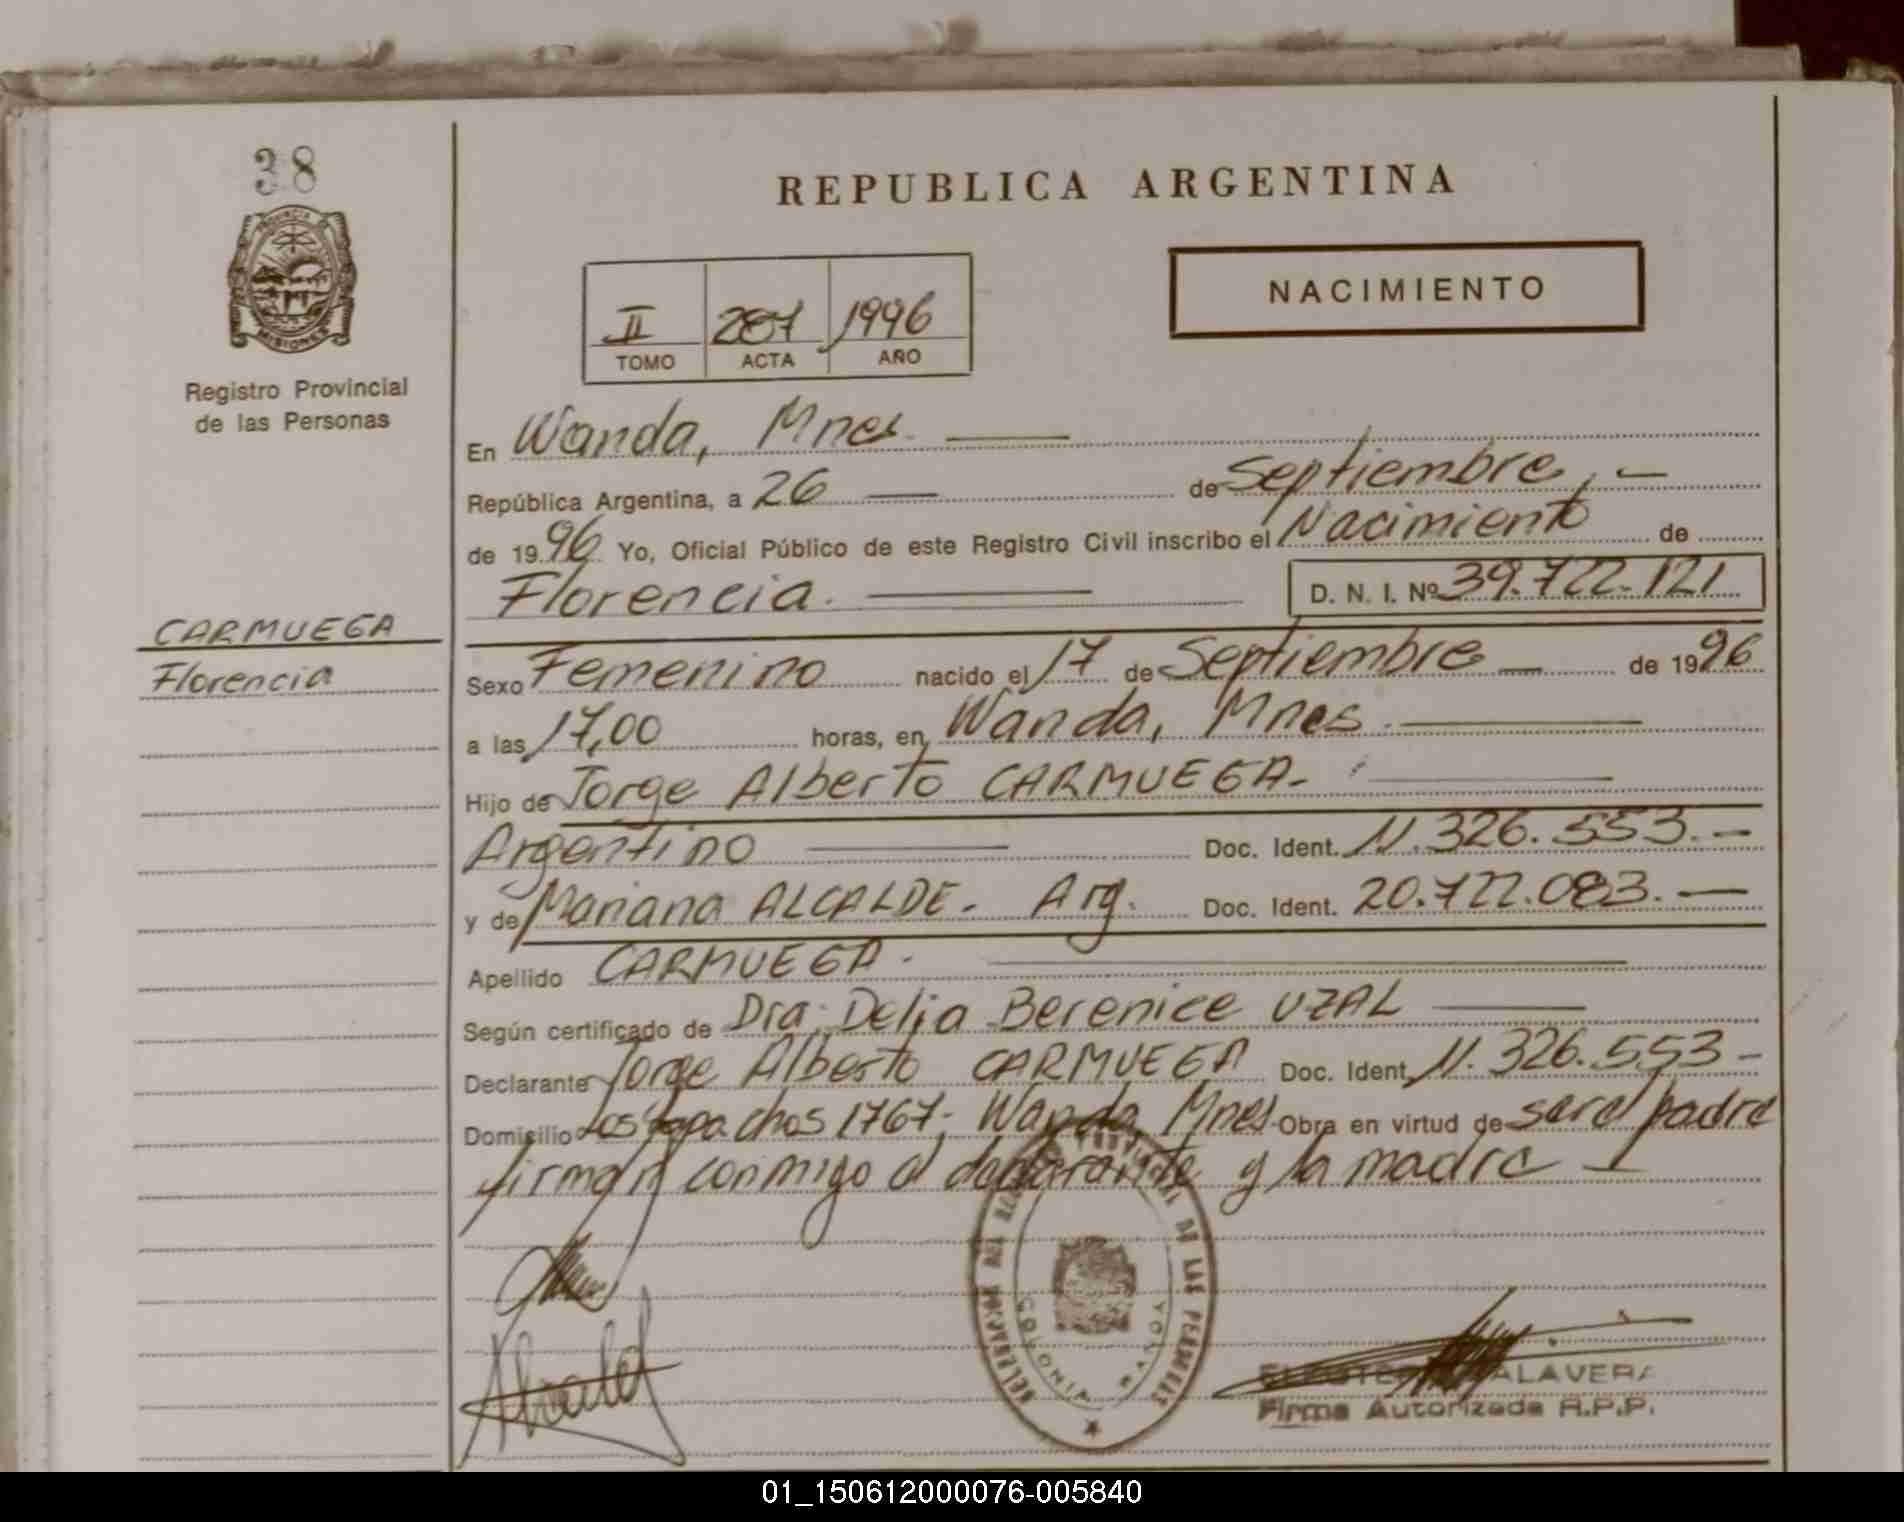 38
REPUBLICA ARGENTINA
PROVINCIA
MISIONES
Registro Provincial
de las Personas
II 287 1996
TOMO ACTA AÑO
NACIMIENTO
En Wanda, Mnes.
República Argentina, a 26 de Septiembre,
de 1996 Yo, Oficial Público de este Registro Civil inscribo el Nacimiento de
Florencia. D. N. I. Nº 39.722.121
CARMUEGA
Florencia
Sexo Femenino nacido el 17 de Septiembre de 1996
a las 17,00 horas, en Wanda, Mnes.
Hijo de Jorge Alberto CARMUEGA.
Argentino Doc. Ident. 11.326.553.
y de Mariana ALCALDE. Arg. Doc. Ident. 20.722.083.
Apellido CARMUEGA.
Según certificado de Dra. Delia Berenice UZAL
Declarante Jorge Alberto CARMUEGA Doc. Ident. 11.326.553
Domicilio Los Lapachos 1767. Wanda, Mnes. Obra en virtud de ser el padre
firman conmigo el declarante y la madre
DELEGACION DEL REGISTRO PROVINCIAL DE LAS PERSONAS
COLONIA
ALAVERA
Firma Autorizada R.P.P.
01_150612000076-005840